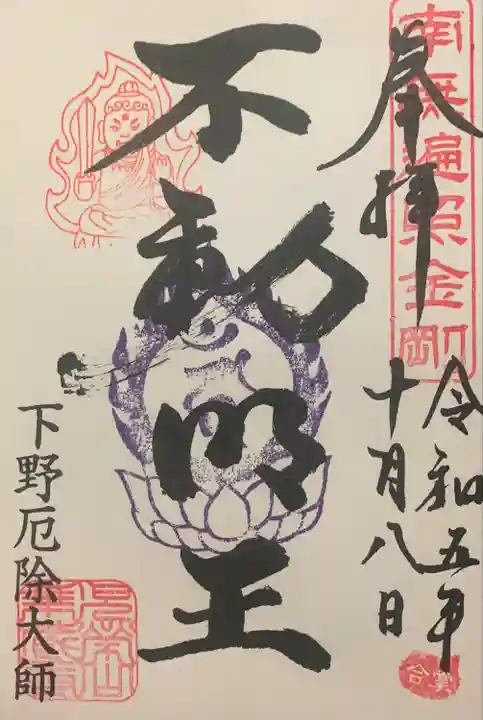 南無遍照金剛
奉拝
令和五年
十月八日
不動明王
下野厄除大師